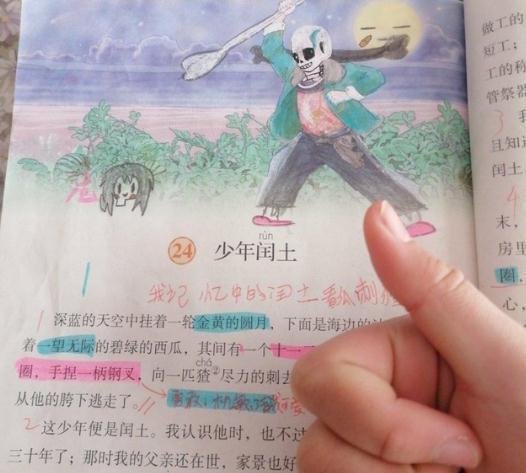 鬼
rùn
24 少年闰土
我记忆中的闰土看瓜刺猹
1 深蓝的天空中挂着一轮金黄的圆月，下面是海边的
着一望无际的碧绿的西瓜，其间有一个十一
chá
圈，手捏一柄钢叉，向一匹猹②尽力的刺去
从他的胯下逃走了。//
勇敢、机敏
2 这少年便是闰土。我认识他时，也不过
三十年了；那时我的父亲还在世，家景也好
做工的
短工；
工的称
管祭器
3 我
且知道
闰土
4
末，
房里
圈，
心，